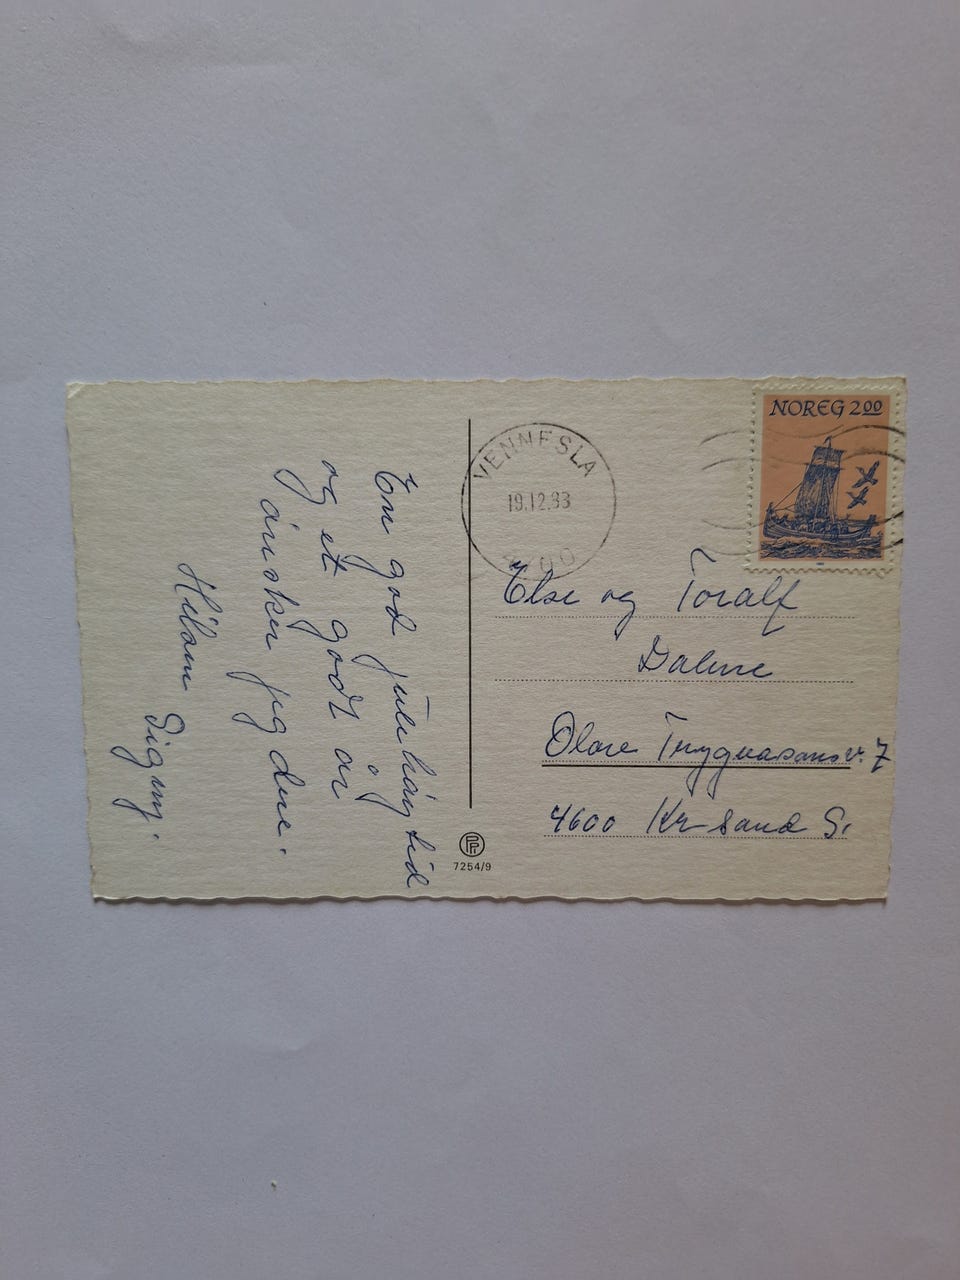 En god julehøytid
og et godt år
ønsker jeg dere.
Hilsen Signy.
VENNESLA
19.12.83
4700
NOREG 2.00
Else og Toralf
Dalene
Olav Trygvasonsv. 7
4600 Kr. sand S.
PFI
7254/9